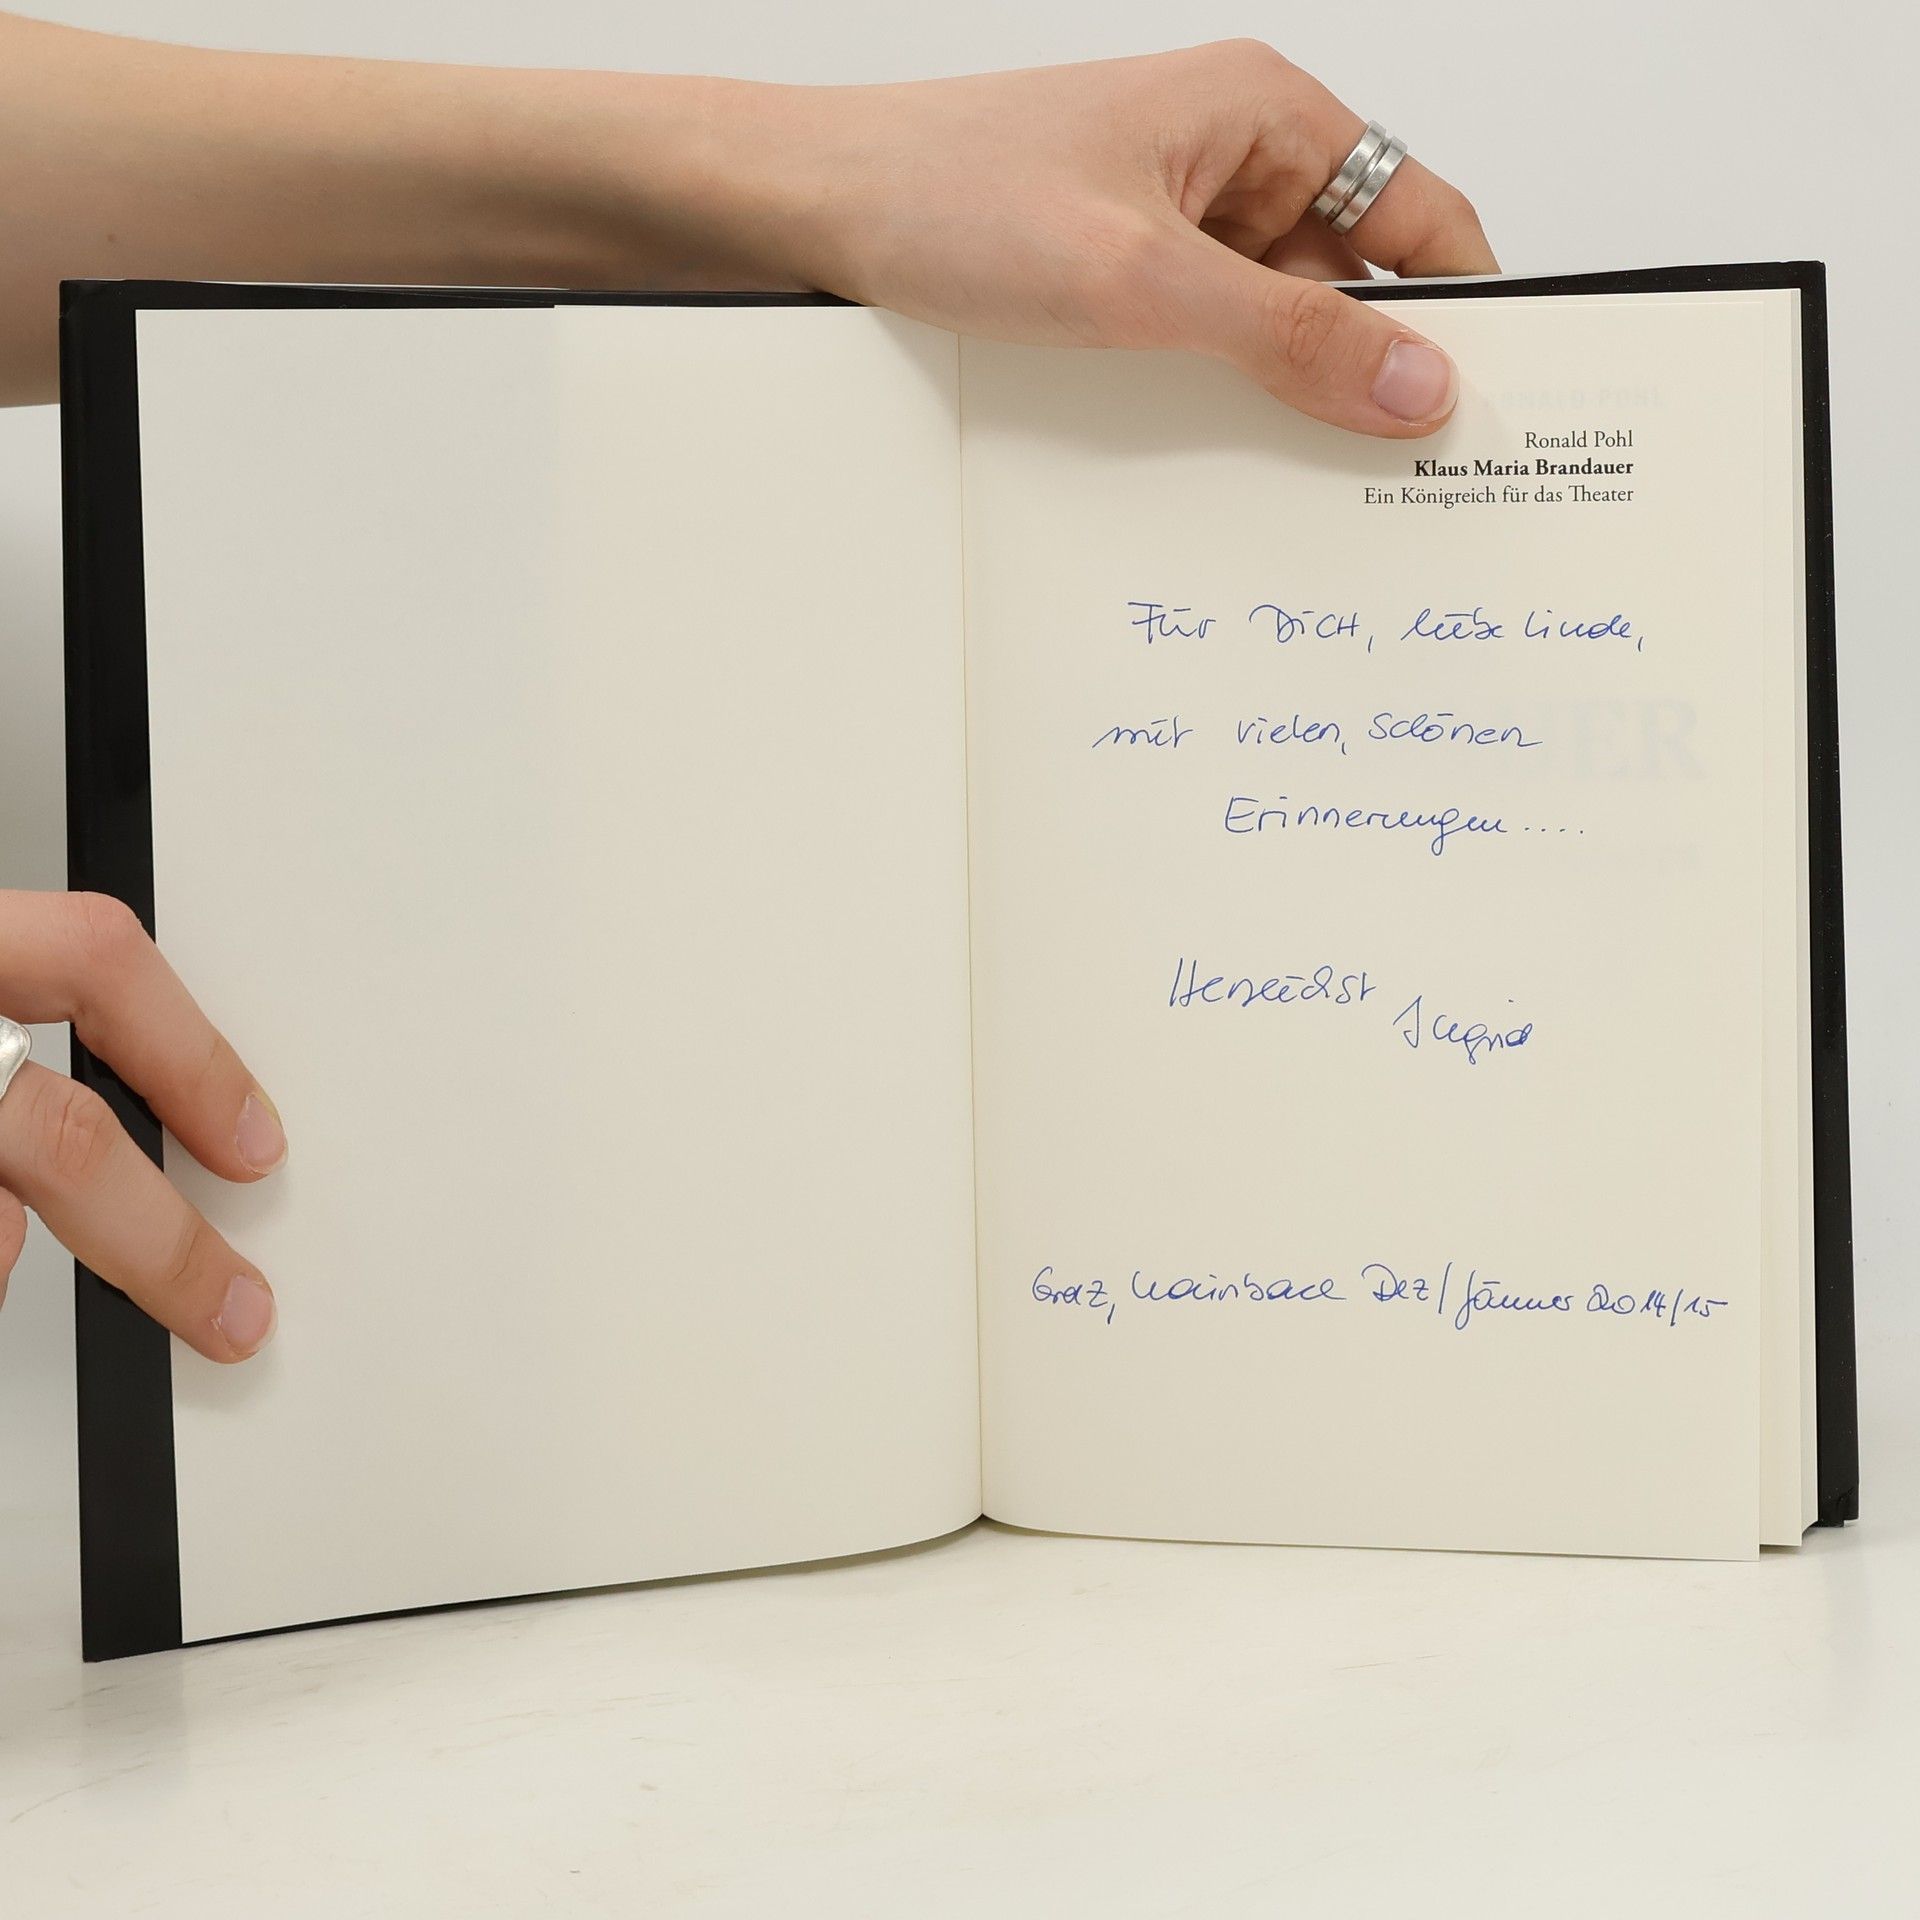 Ronald Pohl
Klaus Maria Brandauer
Ein Königreich für das Theater
Für Dich, liebe Linde,
mit vielen, schönen
Erinnerungen ....
Herzlichst
Ingrid
Graz, Dez/Jänner 2014/15